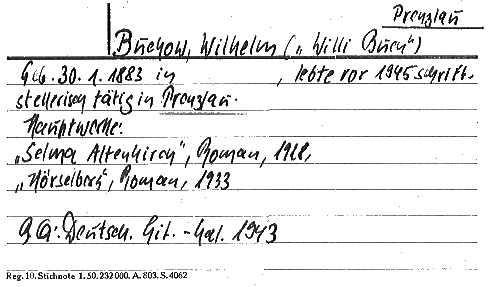 Prenzlau
Buchow, Wilhelm („Willi Buch")
Geb. 30. 1. 1883 in , lebte vor 1945 schrift-
stellerisch tätig in Prenzlau.
Hauptwerke:
„Selma Altenkirch", Roman, 1918,
„Hörselberg", Roman, 1933
QA: Deutsch. Lit. - Kal. 1943
Reg. 10. Stichnote 1. 50. 232 000. A. 803. S. 4062